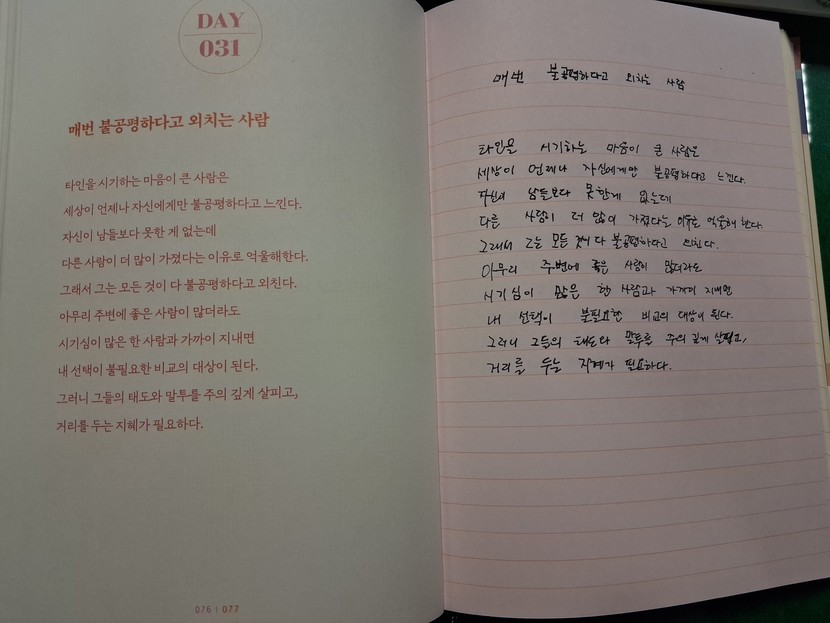 DAY
031
매번 불공평하다고 외치는 사람
타인을 시기하는 마음이 큰 사람은
세상이 언제나 자신에게만 불공평하다고 느낀다.
자신이 남들보다 못한 게 없는데
다른 사람이 더 많이 가졌다는 이유로 억울해한다.
그래서 그는 모든 것이 다 불공평하다고 외친다.
아무리 주변에 좋은 사람이 많더라도
시기심이 많은 한 사람과 가까이 지내면
내 선택이 불필요한 비교의 대상이 된다.
그러니 그들의 태도와 말투를 주의 깊게 살피고,
거리를 두는 지혜가 필요하다.
076 | 077
매번 불공평하다고 외치는 사람
타인을 시기하는 마음이 큰 사람은
세상이 언제나 자신에게만 불공평하다고 느낀다.
자신이 남들보다 못한게 없는데
다른 사람이 더 많이 가졌다는 이유로 억울해 한다.
그래서 그는 모든 것이 다 불공평하다고 외친다.
아무리 주변에 좋은 사람이 많더라도
시기심이 많은 한 사람과 가까이 지내면
내 선택이 불필요한 비교의 대상이 된다.
그러니 그들의 태도와 말투를 주의 깊게 살피고,
거리를 두는 지혜가 필요하다.